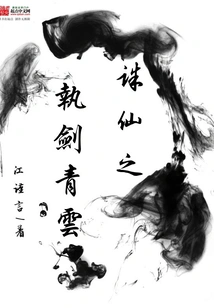 起点中文网
誅仙之
執劍青雲
江謹言/著